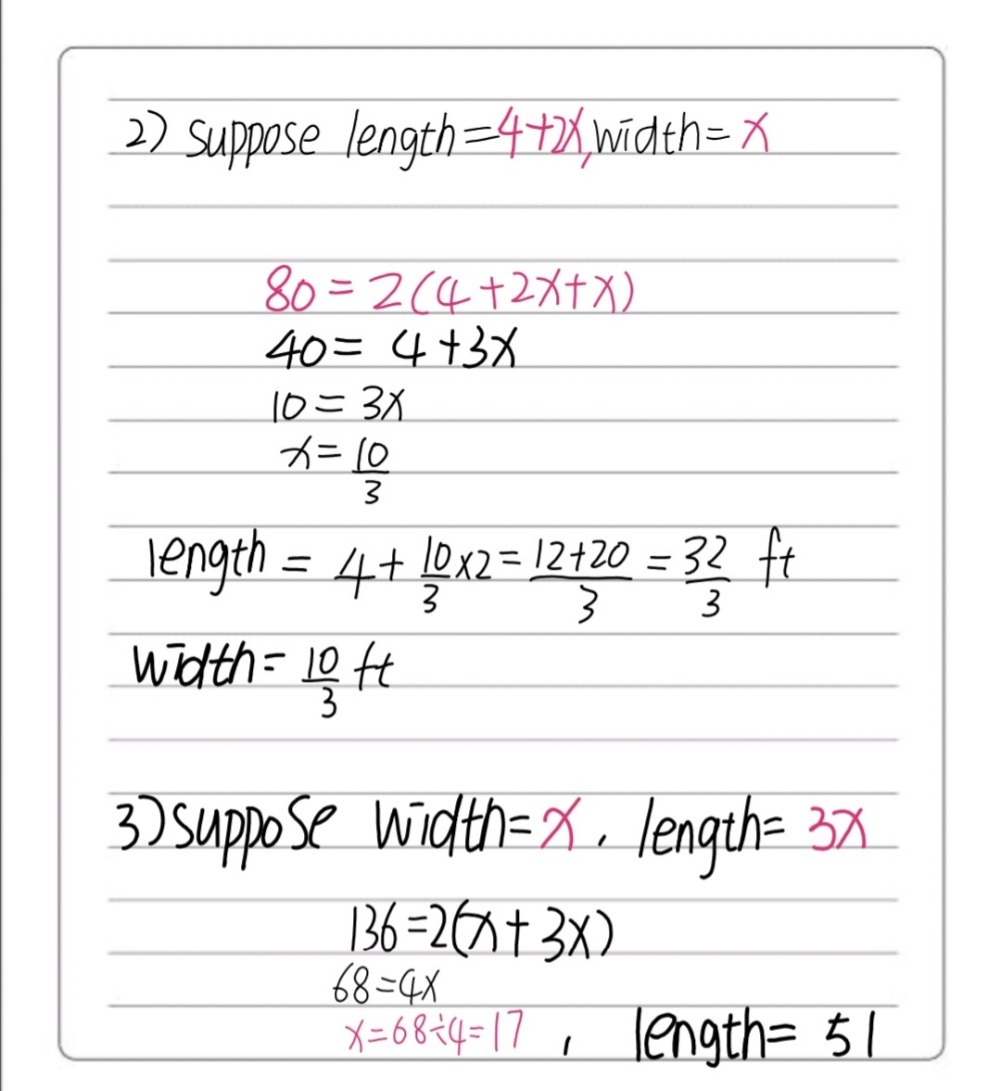 2) suppose length=4+2x, width=x
80=2(4+2x+x)
40=4+3x
10=3x
x=10/3
length=4+10/3×2=12+20/3=32/3 ft
width=10/3 ft
3) suppose width=x, length=3x
136=2(x+3x)
68=4x
x=68÷4=17, length=51